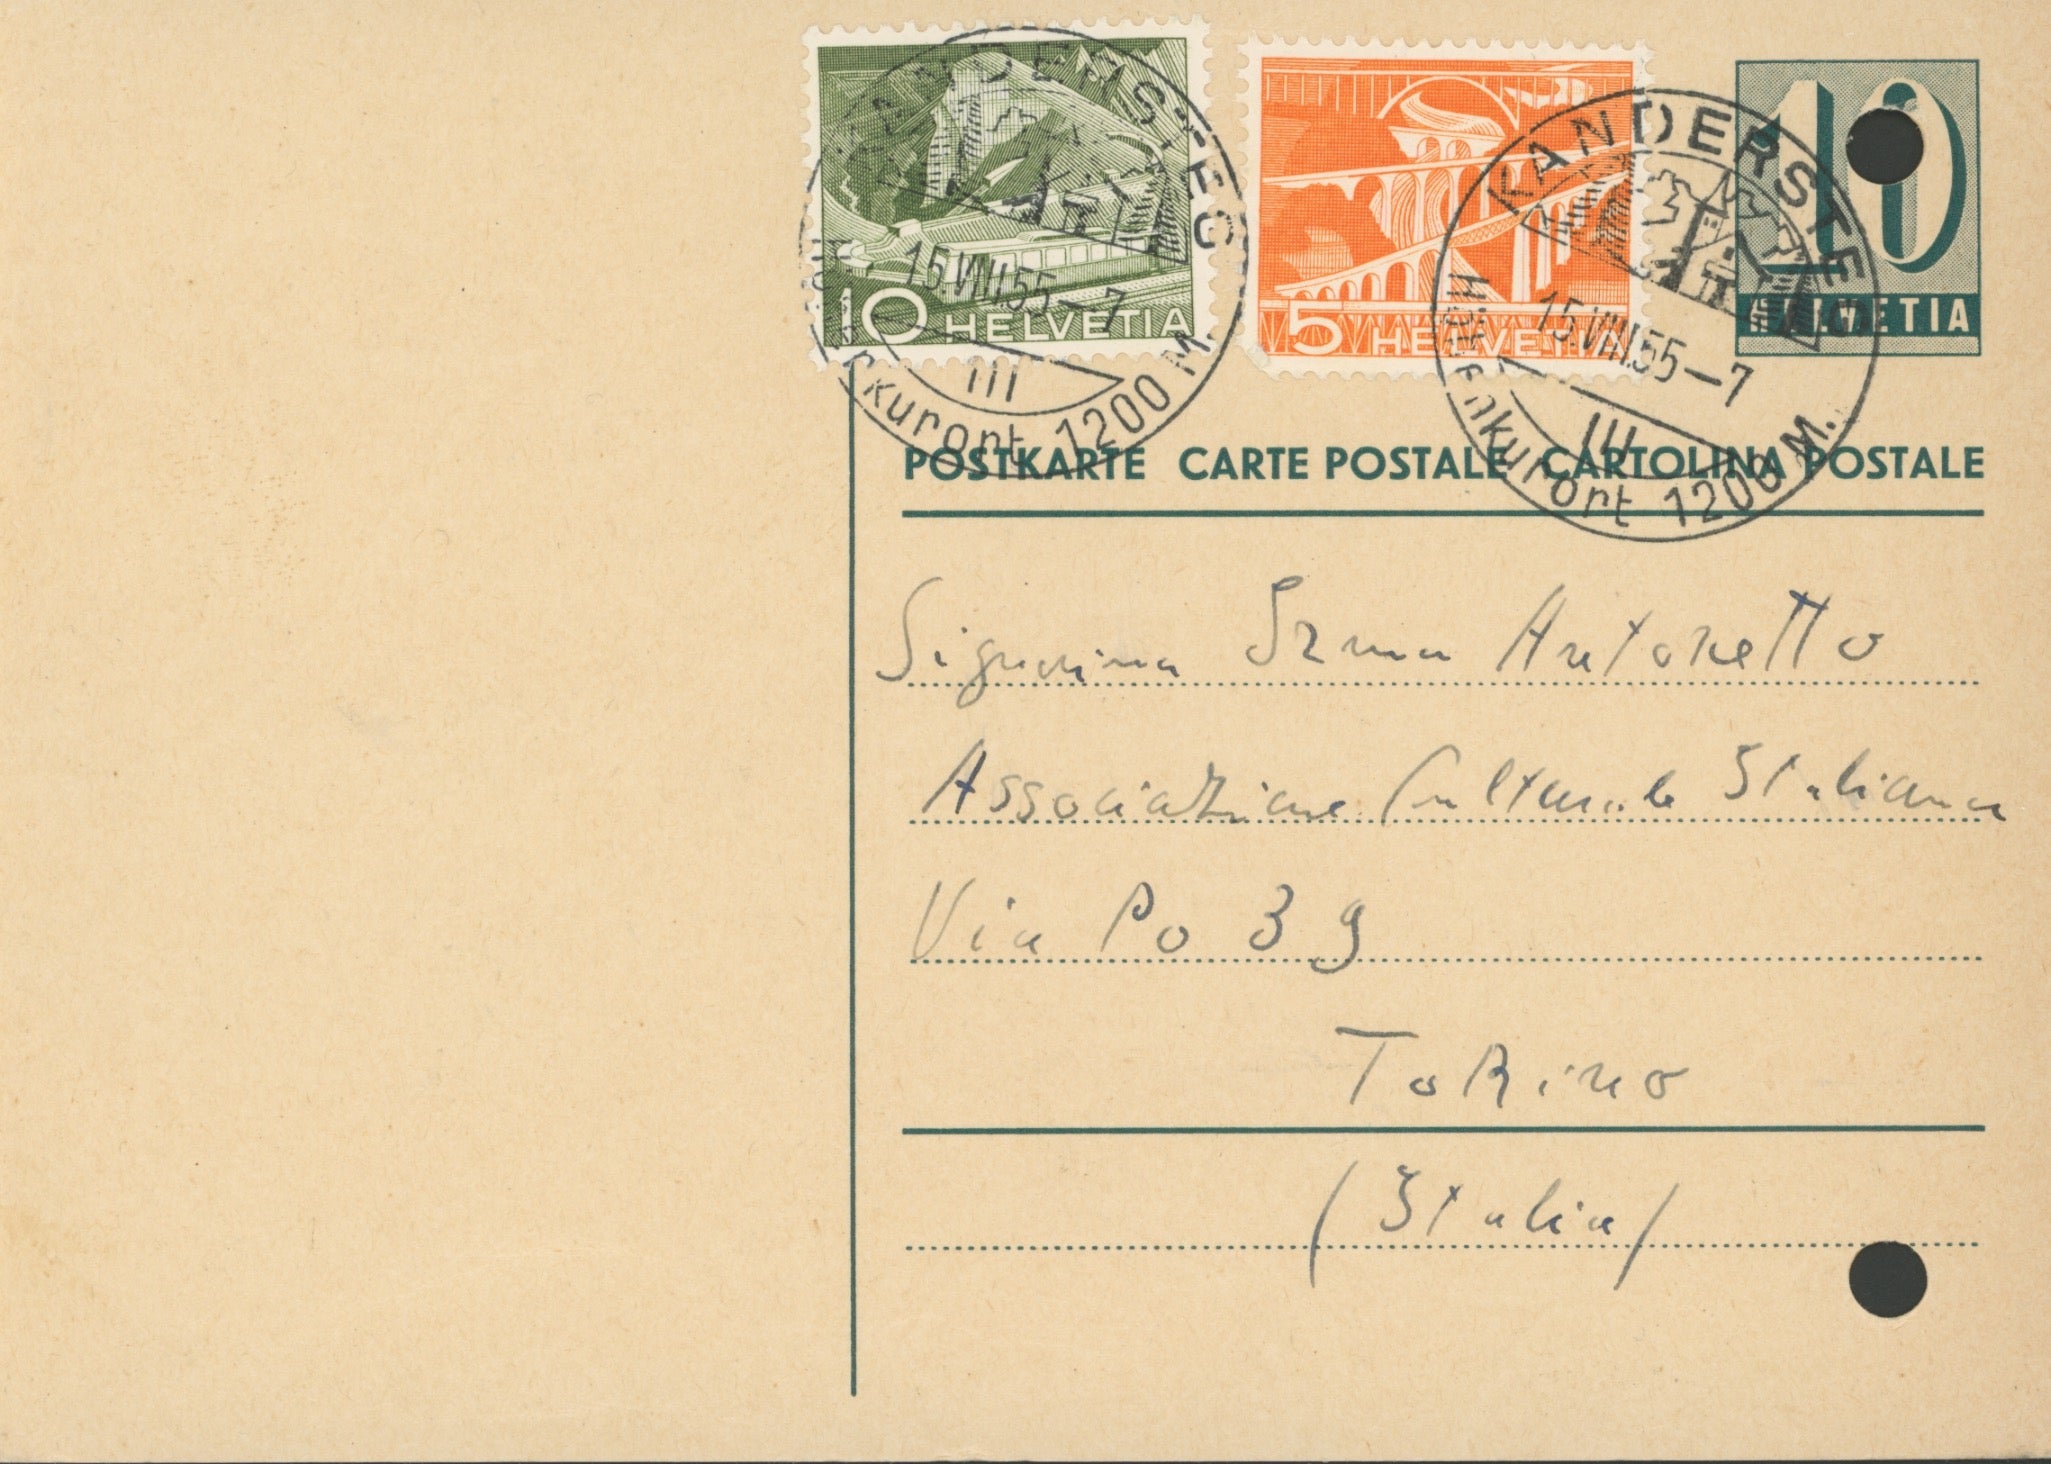 KANDERSTEG
15.VIII.55–7
III
Höhenkurort 1200 M.
10 HELVETIA
5 HELVETIA
KANDERSTEG
15.VIII.55–7
III
Höhenkurort 1200 M.
10
HELVETIA
POSTKARTE CARTE POSTALE CARTOLINA POSTALE
Signorina Irma Antonetto
Associazione Culturale Italiana
Via Po 39
Torino
(Italia)